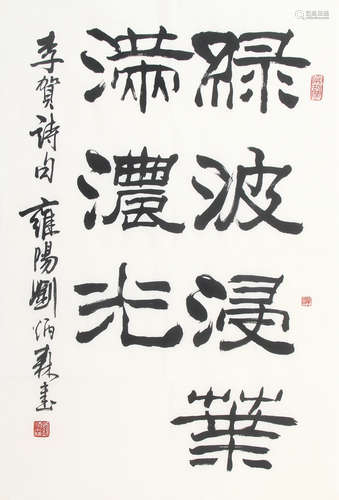 綠波浸葉
滿濃光
李賀詩句 雍陽劉炳森書